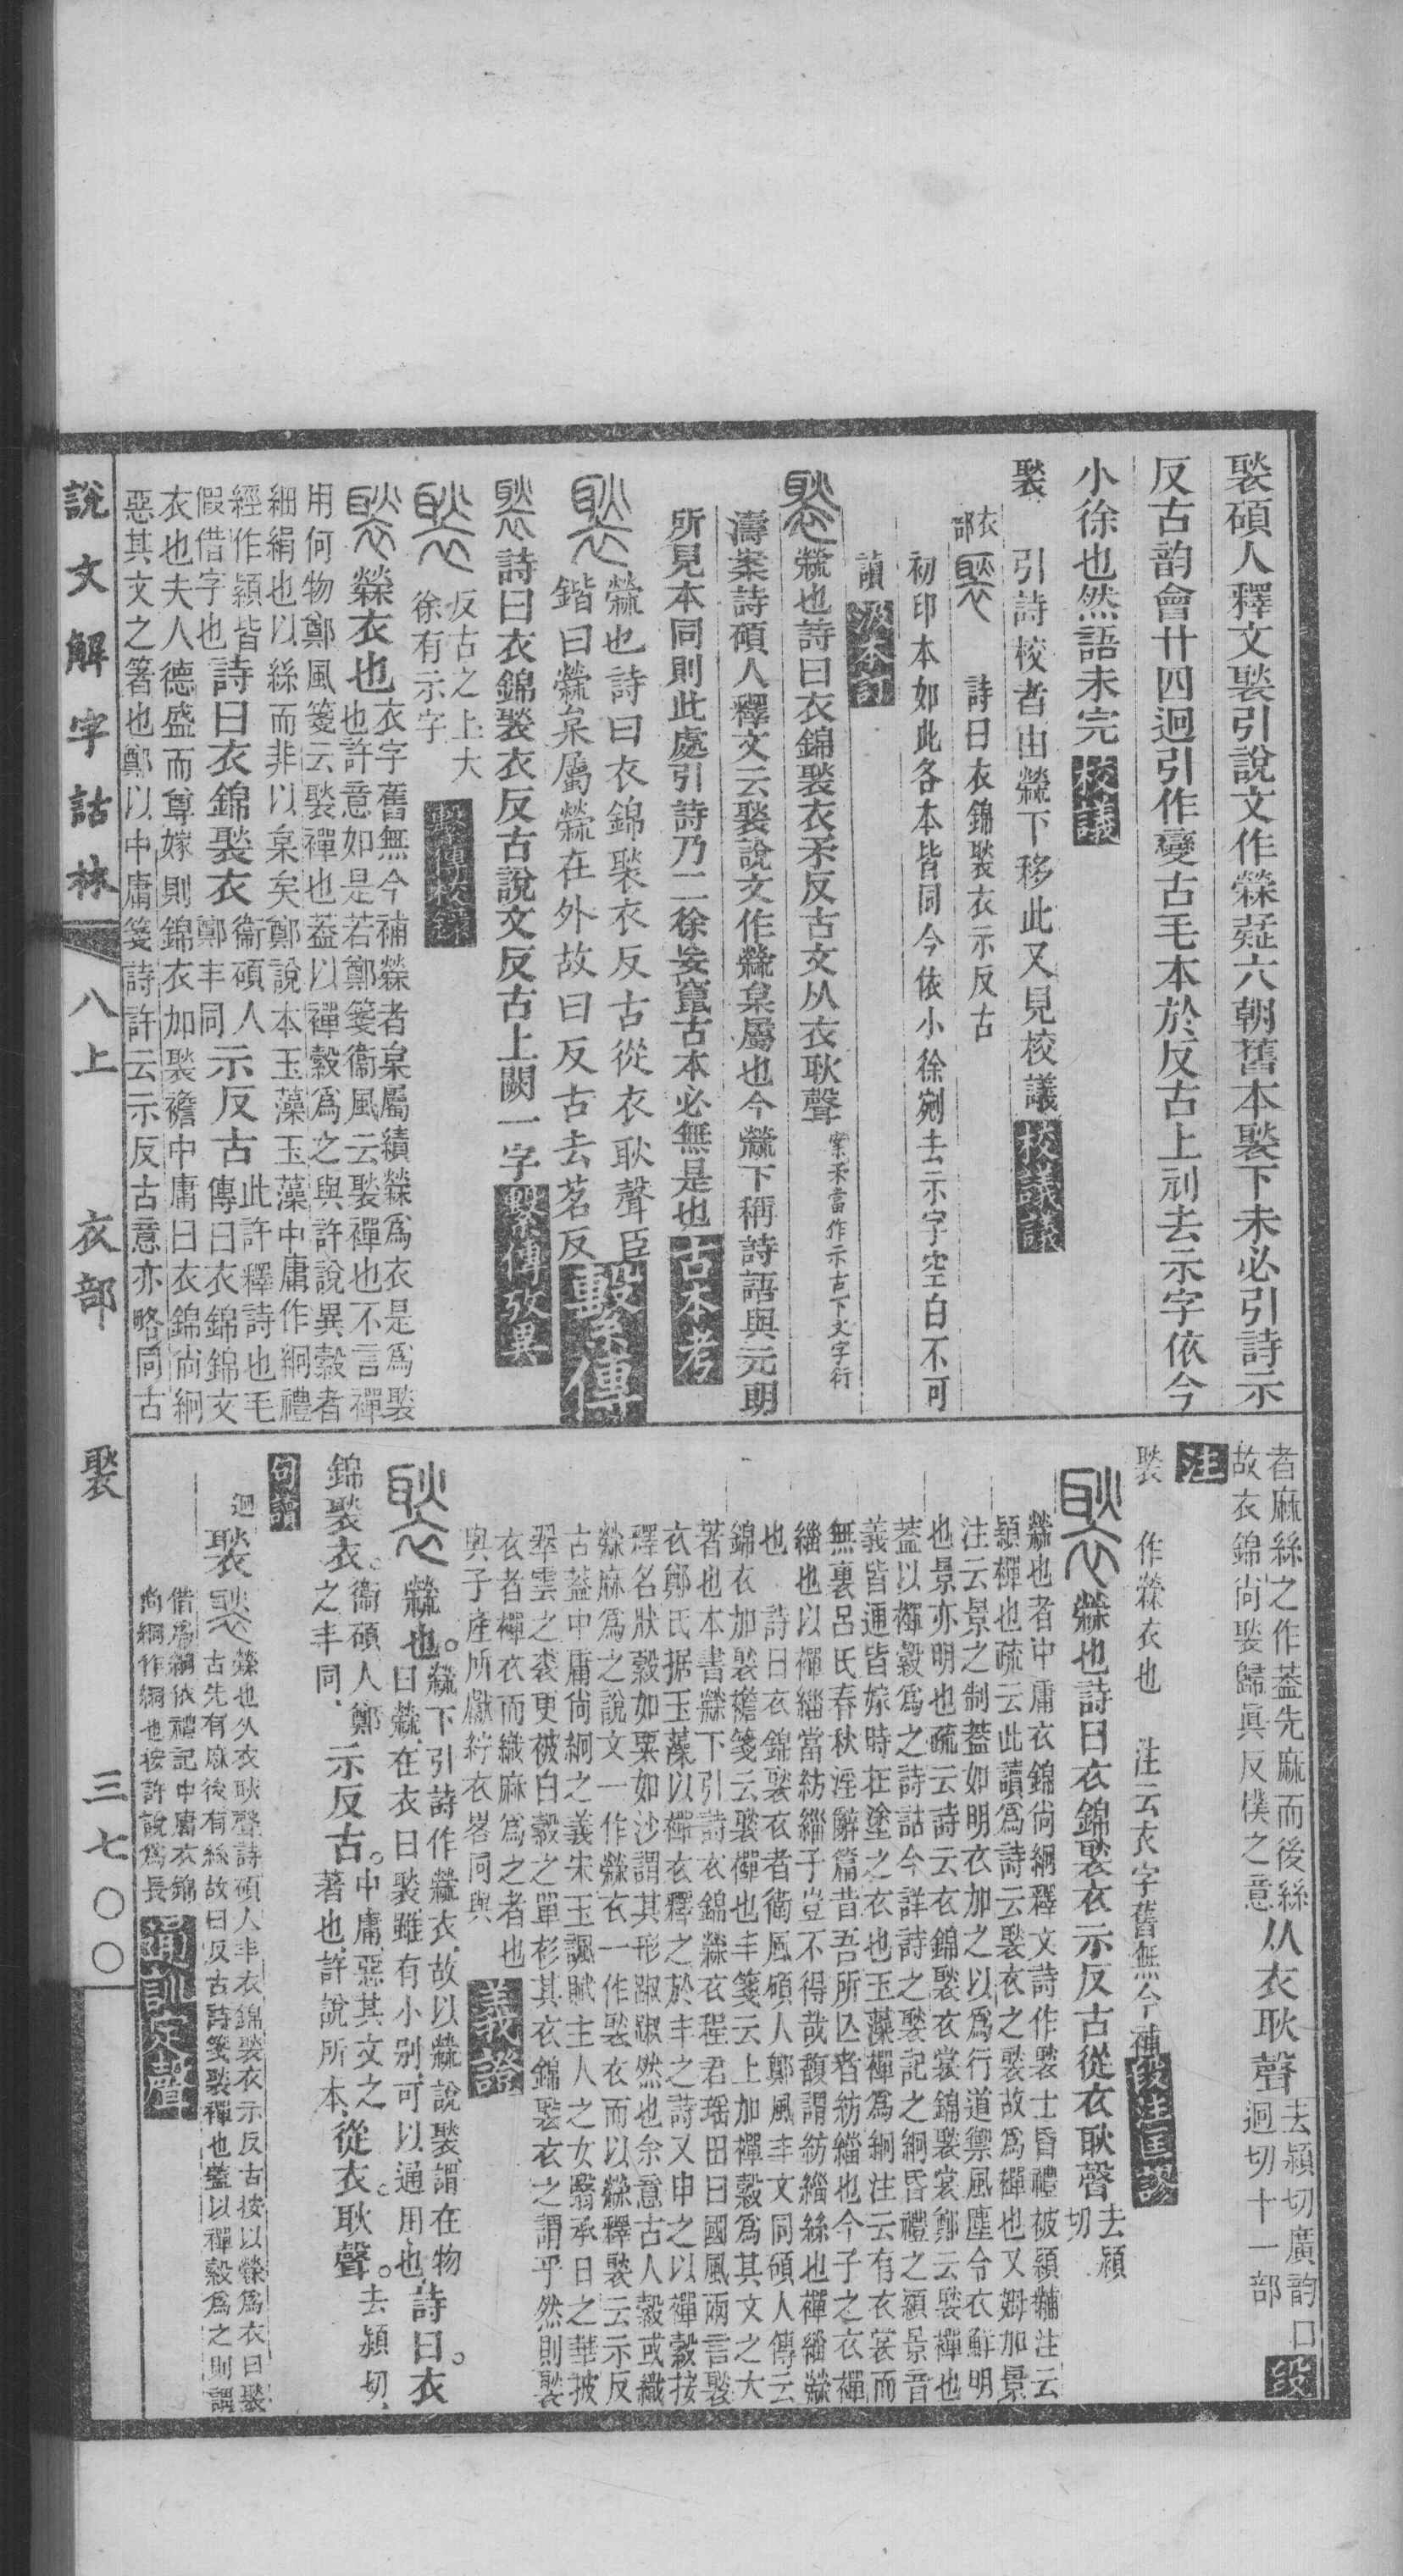 褧碩人釋文褧引說文作檾疑六朝舊本褧下未必引詩示
反古韵會廿四迥引作變古毛本於反古上刓去示字依今
小徐也然語未完校議
褧 引詩校者由檾下移此又見校議校議議
衣部 褧 詩曰衣錦褧衣示反古
初印本如此各本皆同今依小徐剜去示字空白不可
讀汲本訂
褧 檾也詩曰衣錦褧衣矛反古文从衣耿聲案矛當作示古下文字衍
濤案詩碩人釋文云褧說文作檾枲屬也今檾下稱詩語與元朗
所見本同則此處引詩乃二徐妄竄古本必無是也古本考
褧 檾也詩曰衣錦褧衣反古從衣耿聲臣
鍇曰檾枲屬檾在外故曰反古去茗反繫傳
褧 詩曰衣錦褧衣反古說文反古上闕一字繫傳攷異
褧 反古之上大
徐有示字 繫傳校錄
褧 檾衣也衣字舊無今補檾者枲屬績檾爲衣是爲褧
也許意如是若鄭箋衞風云褧襌也不言襌
用何物鄭風箋云褧襌也蓋以襌縠爲之與許說異縠者
細絹也以絲而非以枲矣鄭說本玉藻玉藻中庸作絅禮
經作潁皆
假借字也詩曰衣錦褧衣衞碩人
鄭丰同示反古此許釋詩也毛
傳曰衣錦錦文
衣也夫人德盛而尊嫁則錦衣加褧襜中庸曰衣錦尙絅
惡其文之箸也鄭以中庸箋詩許云示反古意亦略同古
者麻絲之作葢先麻而後絲
故衣錦尙褧歸眞反樸之意从衣耿聲去潁切廣韵口
迥切十一部段
注
褧 作檾衣也 注云衣字舊無今補段注匡謬
褧 檾也詩曰衣錦褧衣示反古從衣耿聲去潁
切
檾也者中庸衣錦尙絅釋文詩作褧士昏禮被潁黼注云
潁襌也疏云此讀爲詩云褧衣之褧故爲襌也又姆加景
注云景之制葢如明衣加之以爲行道禦風塵令衣鮮明
也景亦明也疏云詩云衣錦褧衣裳錦褧裳鄭云褧襌也
葢以襌縠爲之詩詁今詳詩之褧記之絅昏禮之潁景音
義皆通皆嫁時在塗之衣也玉藻襌爲絅注云有衣裳而
無裏呂氏春秋淫辭篇昔吾所亾者紡緇也今子之衣襌
緇也以襌緇當紡緇子豈不得哉馥謂紡緇絲也襌緇檾
也 詩曰衣錦褧衣者衞風碩人鄭風丰文同碩人傳云
錦衣加褧襜箋云褧襌也丰箋云上加襌縠爲其文之大
著也本書檾下引詩衣錦檾衣程君瑶田曰國風兩言褧
衣鄭氏据玉藻以襌衣釋之於丰之詩又申之以襌縠按
釋名狀縠如粟如沙謂其形踧踧然也余意古人縠或織
檾麻爲之說文一作檾衣一作褧衣而以檾釋褧云示反
古葢中庸尙絅之義宋玉諷賦主人之女翳承日之華披
翠雲之裘更被白縠之單衫其衣錦褧衣之謂乎然則褧
衣者襌衣而織麻爲之者也
與子產所獻紵衣畧同與 義證
褧 檾也檾下引詩作檾衣故以檾說褧謂在物
曰檾在衣曰褧雖有小别可以通用也詩曰衣
錦褧衣衞碩人鄭
之丰同示反古中庸惡其文之
著也許說所本從衣耿聲去潁切
句讀
迥 褧 褧 檾也从衣耿聲詩碩人丰衣錦褧衣示反古按以檾爲衣曰褧
古先有麻後有絲故曰反古詩箋褧襌也葢以襌縠爲之則謂
借爲絅依禮記中庸衣錦
尙絅作絅也按許說爲長 通訓定聲
說文解字詁林 八上 衣部 褧 三七〇〇